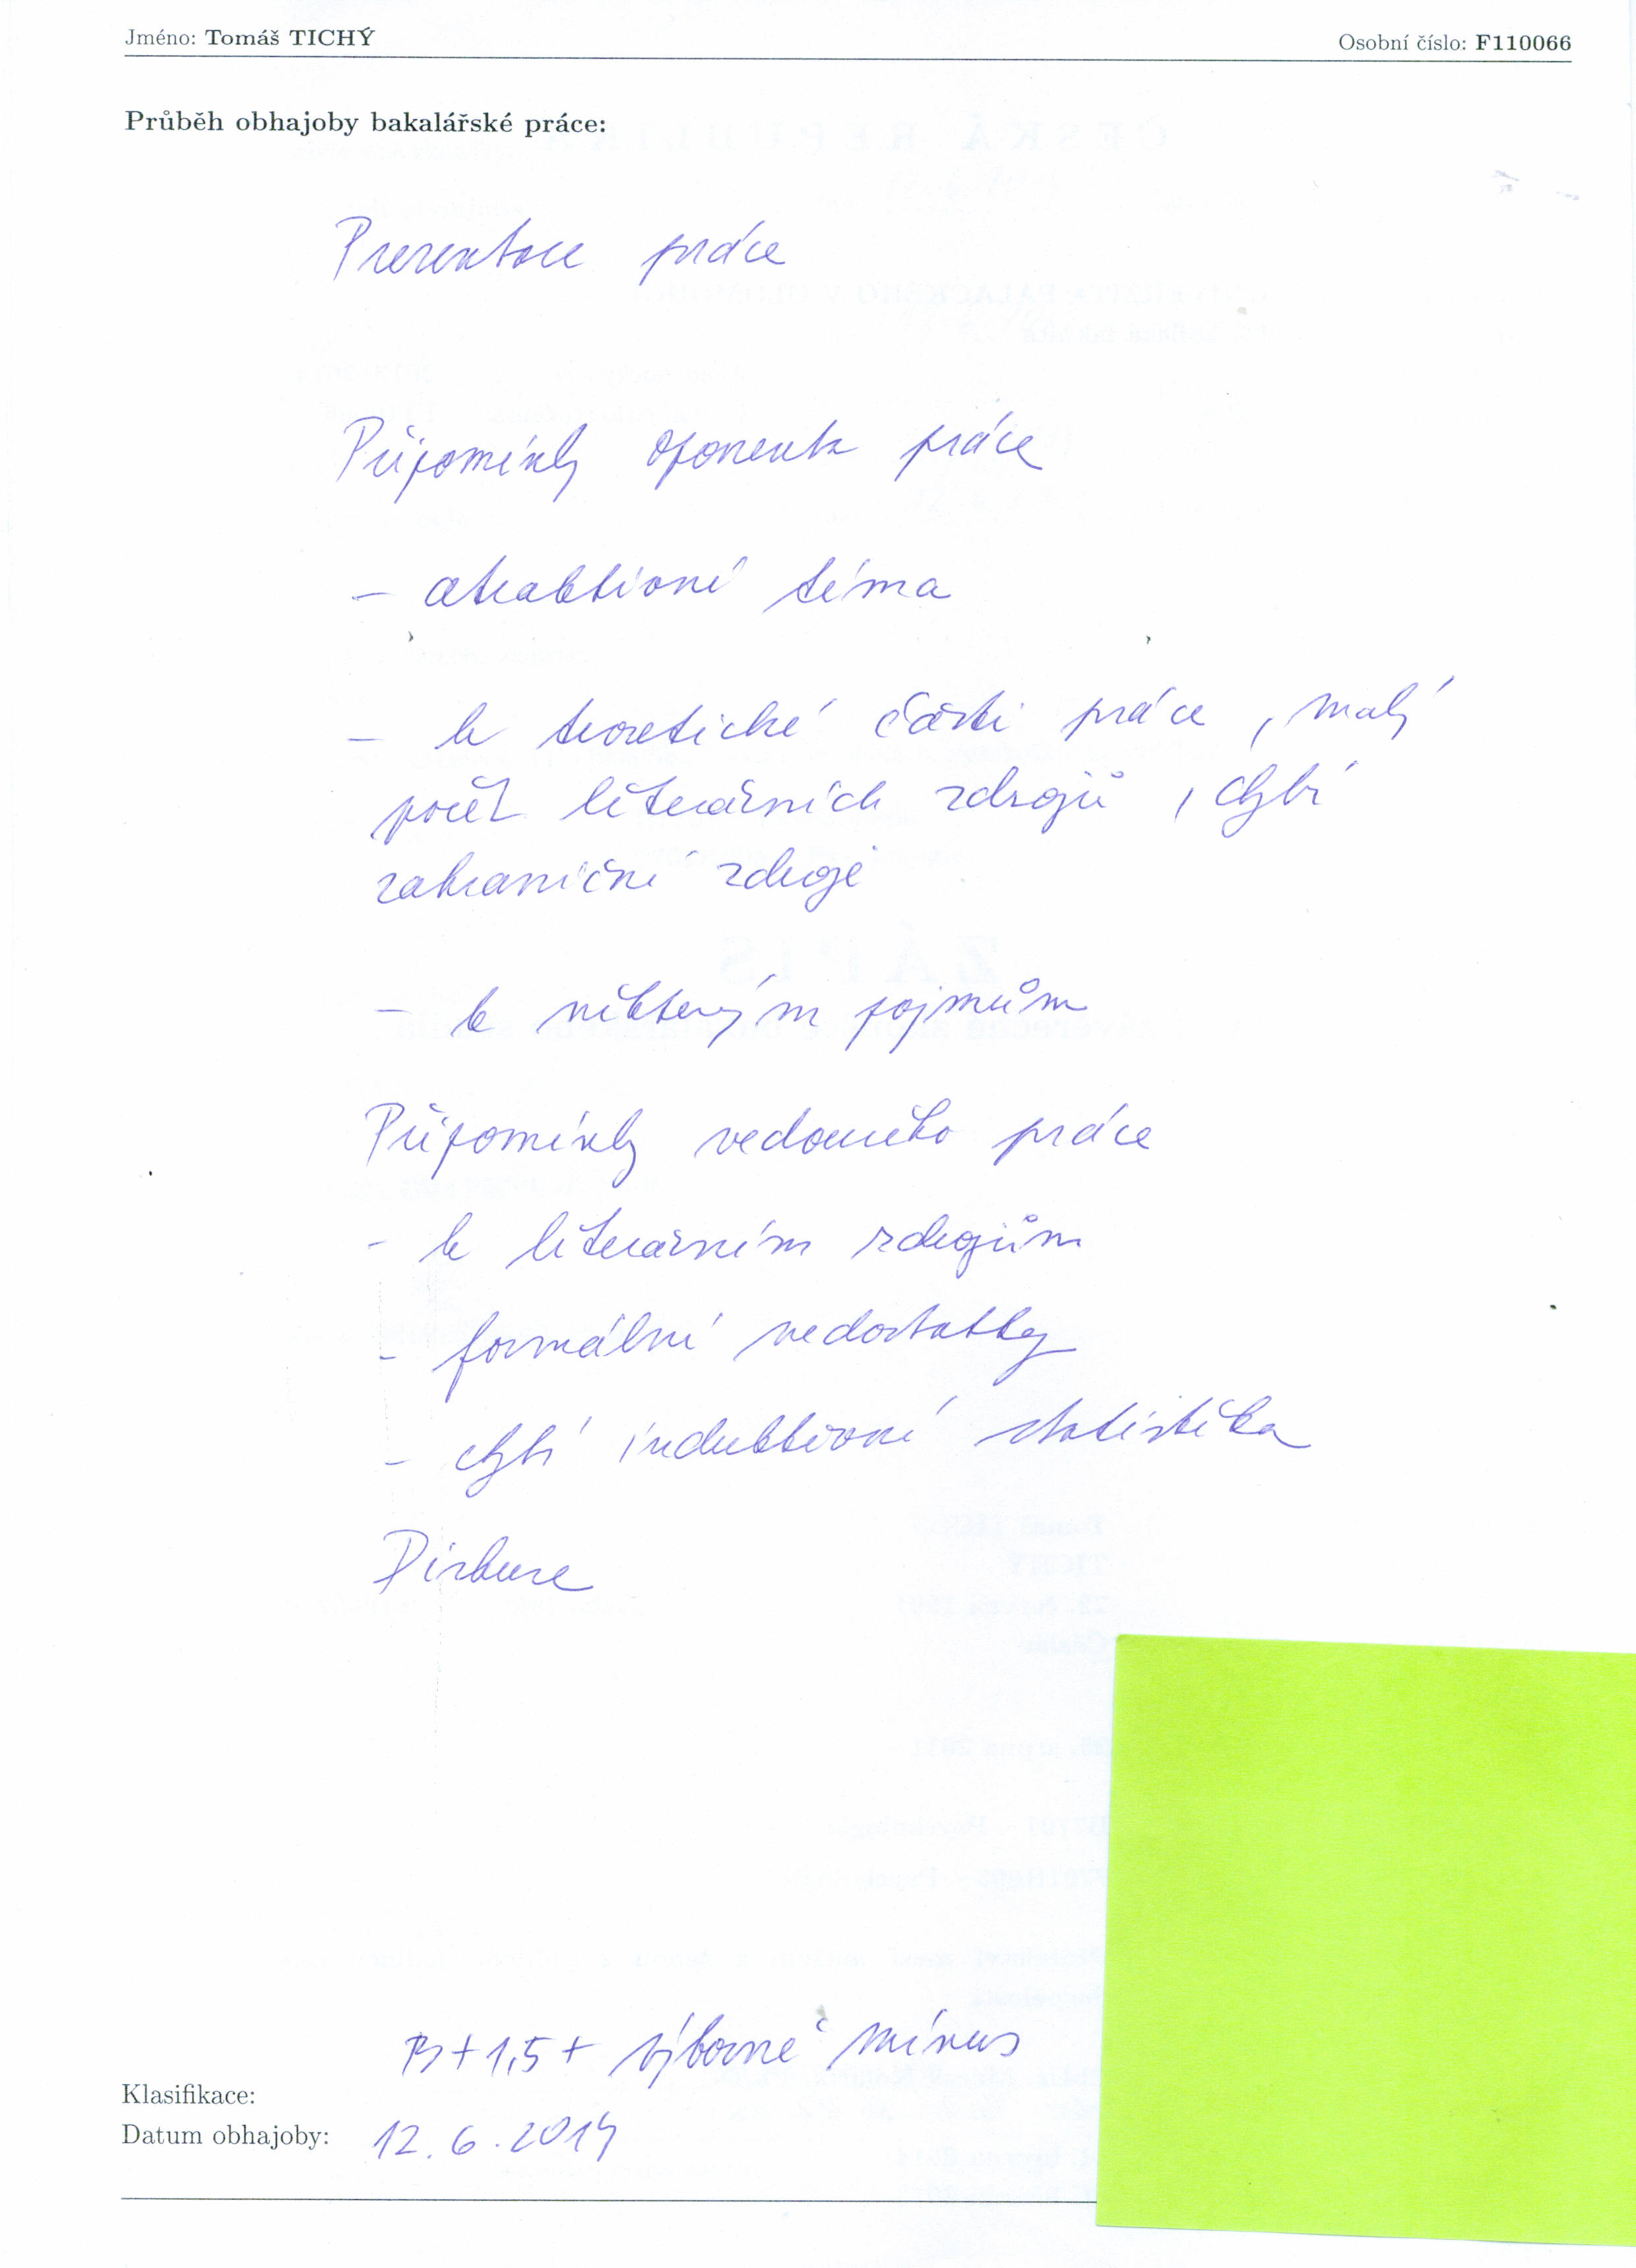 Jméno: Tomáš TICHÝ Osobní číslo: F110066
Průběh obhajoby bakalářské práce:
Prezentace práce
Připomínky oponenta práce
- atraktivní téma
- k teoretické části práce, malý
počet literárních zdrojů, chybí
zahraniční zdroje
- k některým pojmům
Připomínky vedoucího práce
- k literárním zdrojům
- formální nedostatky
- chybí induktivní statistika
Diskuse
B+1,5+ výborně mínus
Klasifikace:
Datum obhajoby: 12.6.2014